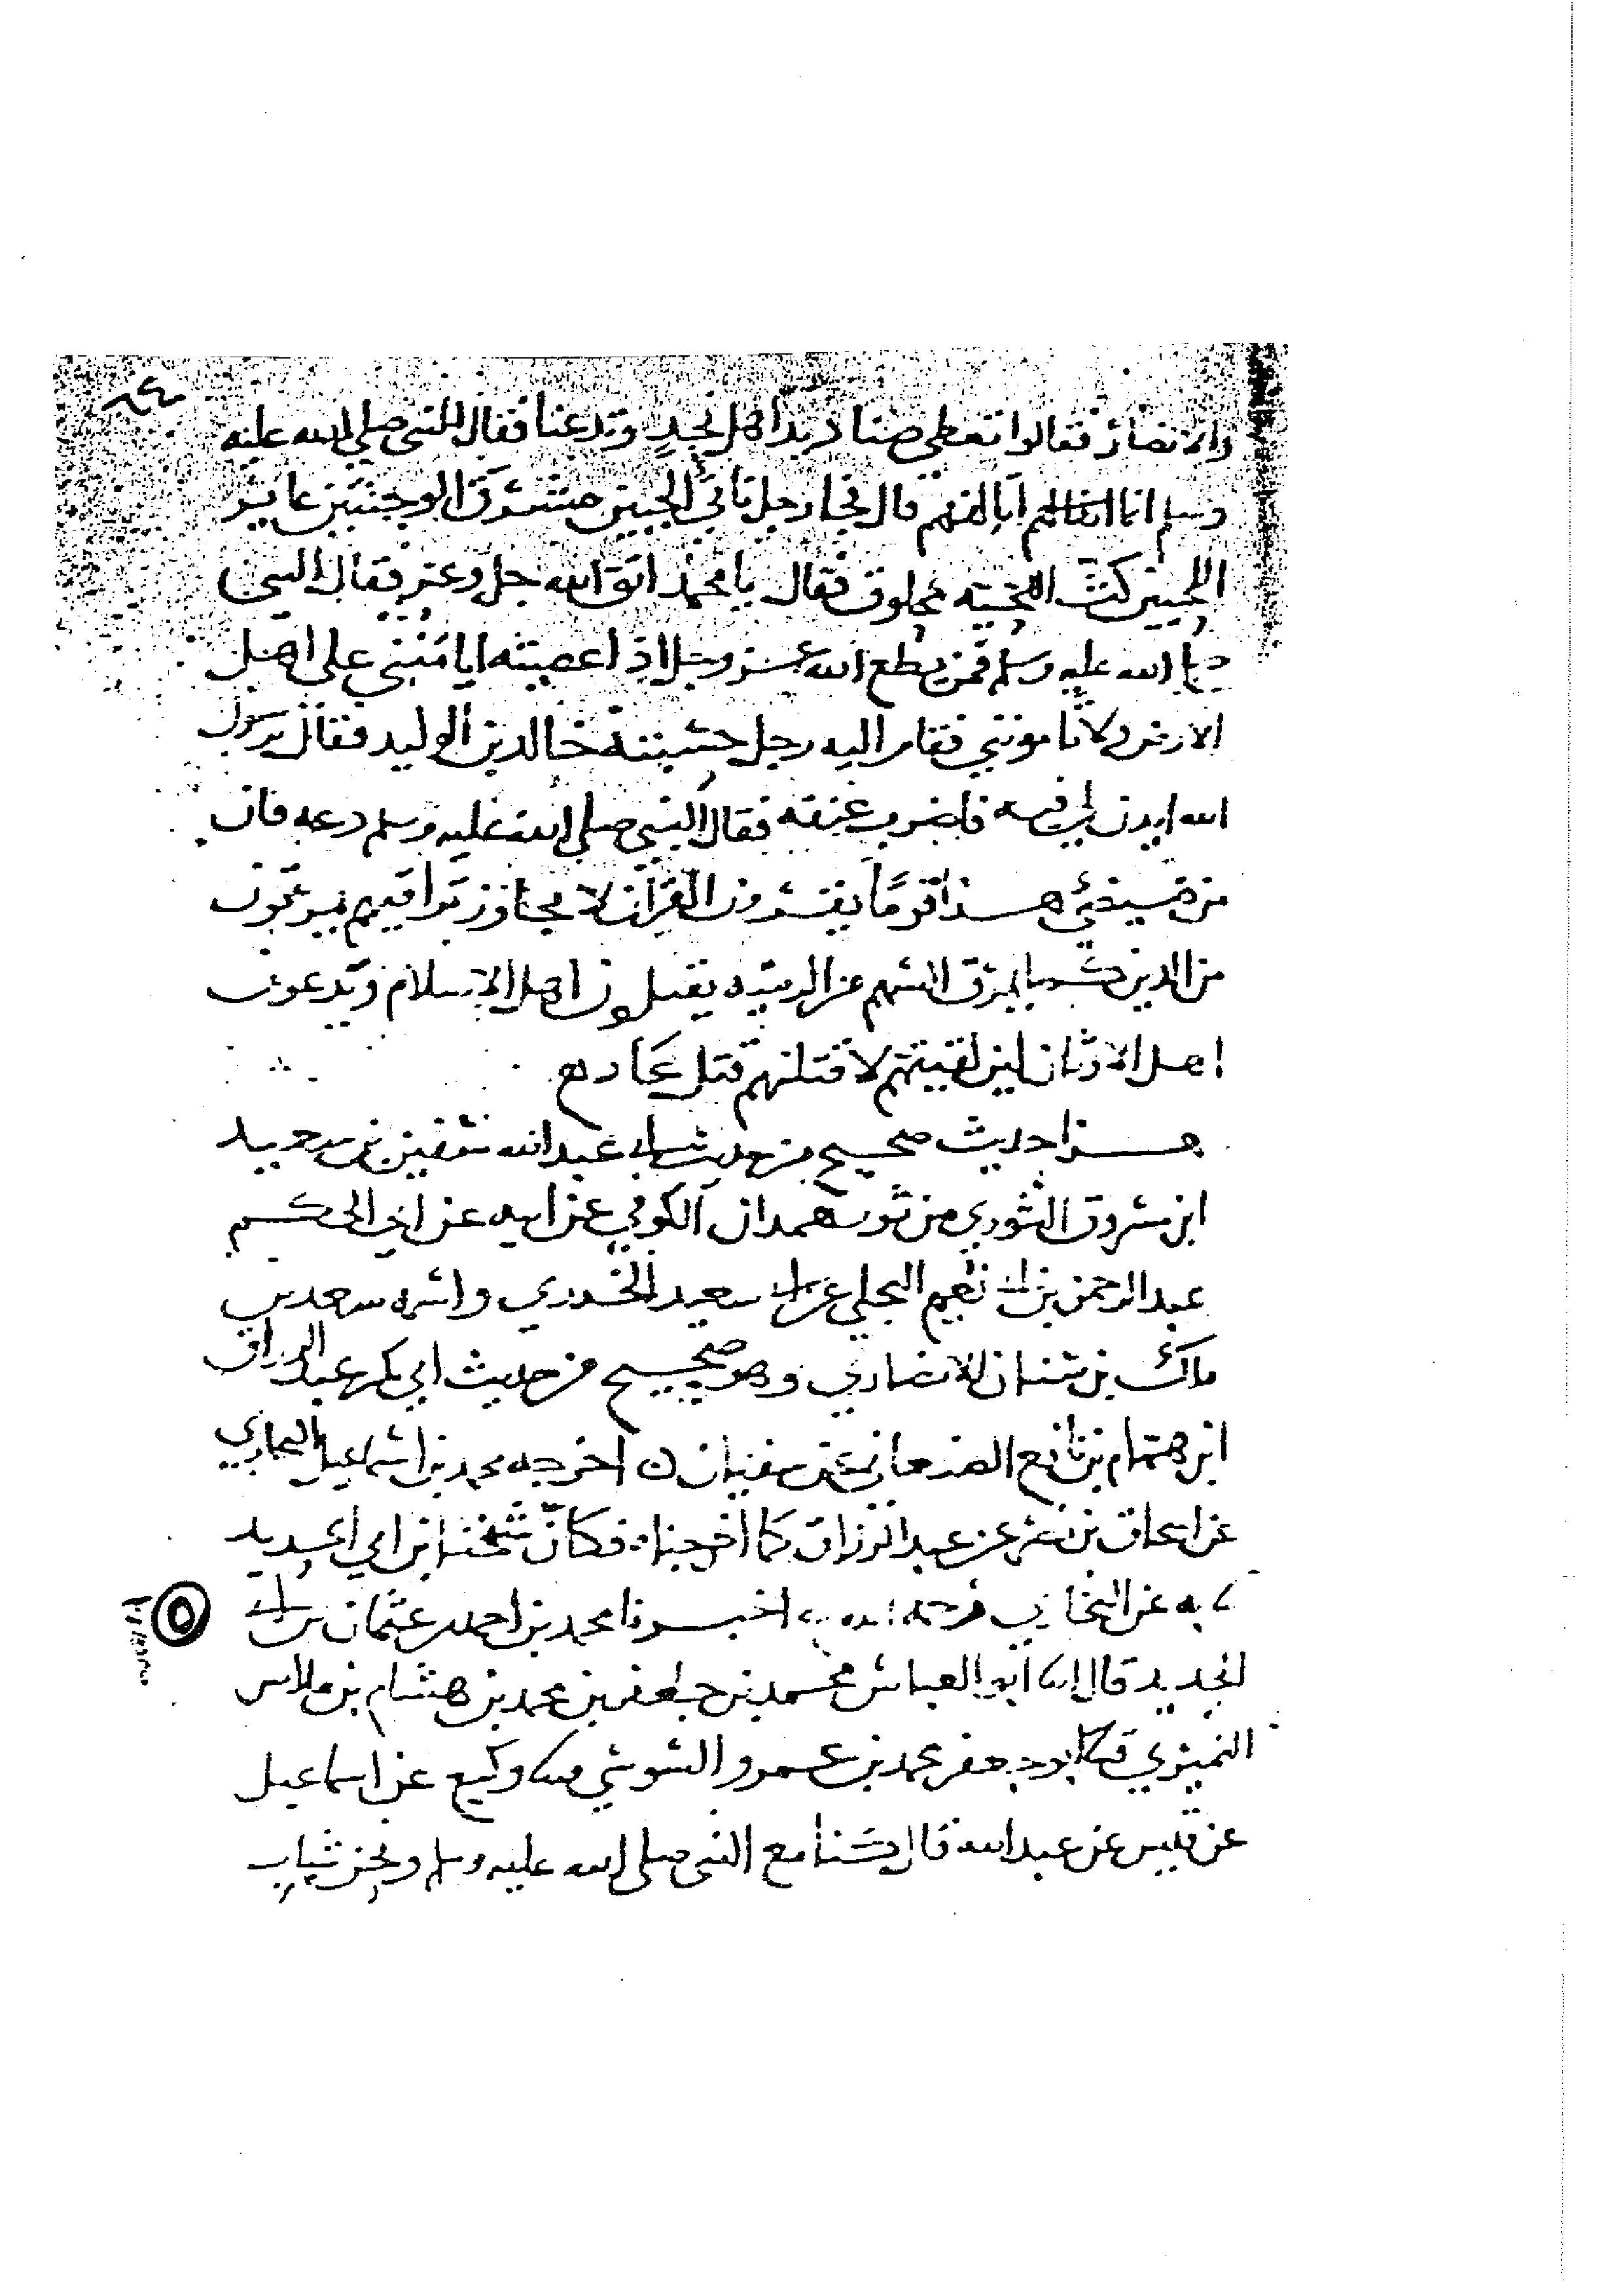 والانصار فقالوا تعطي صناديد اهل نجد وتدعنا فقال النبي صلى الله عليه
وسلم انما اتالفهم قال فجا رجل ناتئ الجبين مشرق الوجنتين غاير
العينين كث اللحية محلوق فقال يا محمد اتق الله جل وعز فقال النبي
صلى الله عليه وسلم فمن يطع الله عز وجل اذا عصيته ايامنني على اهل
الارض ولا تامنوني فقام اليه رجل حسبته خالد بن الوليد فقال يرسول
الله ايذن لي فيه فاضرب عنقه فقال النبي صلى الله عليه وسلم دعه فان
من ضيضئ هذا قوما يقرون القران لا يجاوز تراقيهم يمرقون
من الدين كما يمرق السهم من الرمية يقتلون اهل الاسلام ويدعون
اهل الاوثان لين لقيتهم لاقتلنهم قتل عاد
هذا حديث صحيح من حديث ابي عبد الله سفين بن سعيد
ابن مسروق الثوري من ثور همدان الكوفي عن ابيه عن ابي الحكم
عبد الرحمن بن ابي نعيم البجلي عن ابي سعيد الخدري واسمه سعد بن
مالك بن سنان الانصاري وهو صحيح من حديث ابي بكر عبد الرزاق
ابن همام بن نافع الصنعاني عن سفيان اخرجه محمد بن اسماعيل البخاري
عن اسحاق بن نصر عن عبد الرزاق كما اخرجناه فكان شيخنا ابن ابي الحديد
به عن البخاري رحمه الله اخبرنا محمد بن احمد بن عثمان بن ابي
الحديد قال ابنا ابو العباس محمد بن جعفر بن محمد بن هشام بن ملاس
النميري ثنا ابو جعفر محمد بن عمرو السوسي ثنا وكيع عن اسماعيل
عن قيس عن عبد الله قال كنا مع النبي صلى الله عليه وسلم ونحن شباب